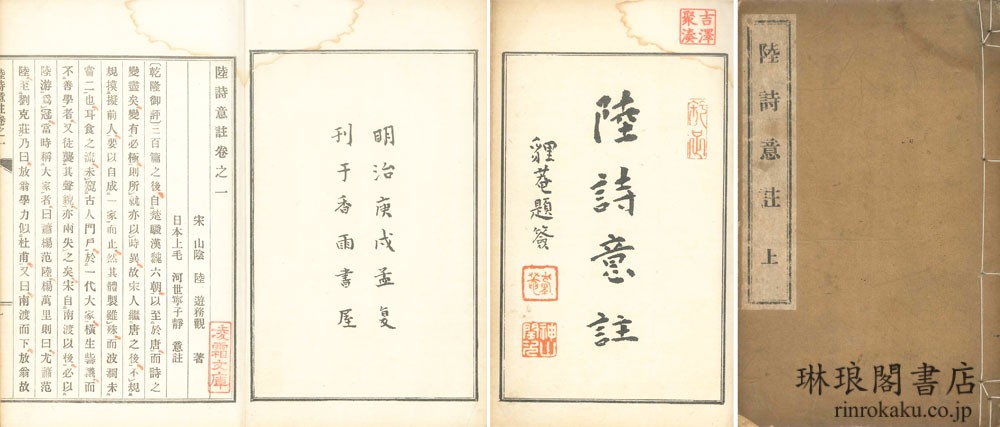 陸詩意註卷之一
宋 山陰 陸 游務觀 著
日本上毛 河世寧子靜 意註
[乾隆御評]三百篇之後自楚騷漢魏六朝以至於唐而詩之
變盡矣變有必極則所就亦以時異故宋人繼唐之後不規
規摸擬前人要以自成一家而止然其體製雖殊而波瀾未
嘗二也耳食之流未窺古人門戶於一代大家橫生訾議而
不善學者又徒襲其聲貌亦兩失之矣宋自南渡以後必以
陸游爲冠當時稱大家者曰蕭楊范陸楊萬里則曰尤蕭范
陸至劉克莊乃曰放翁學力似杜甫又曰南渡而下放翁故
陸詩意註卷之一
凌霜文庫
明治庚戌孟夏
刊于香雨書屋
吉澤聚湊
陸詩意註
貍菴題簽
陸詩意註 上
琳琅閣書店
rinrokaku.co.jp